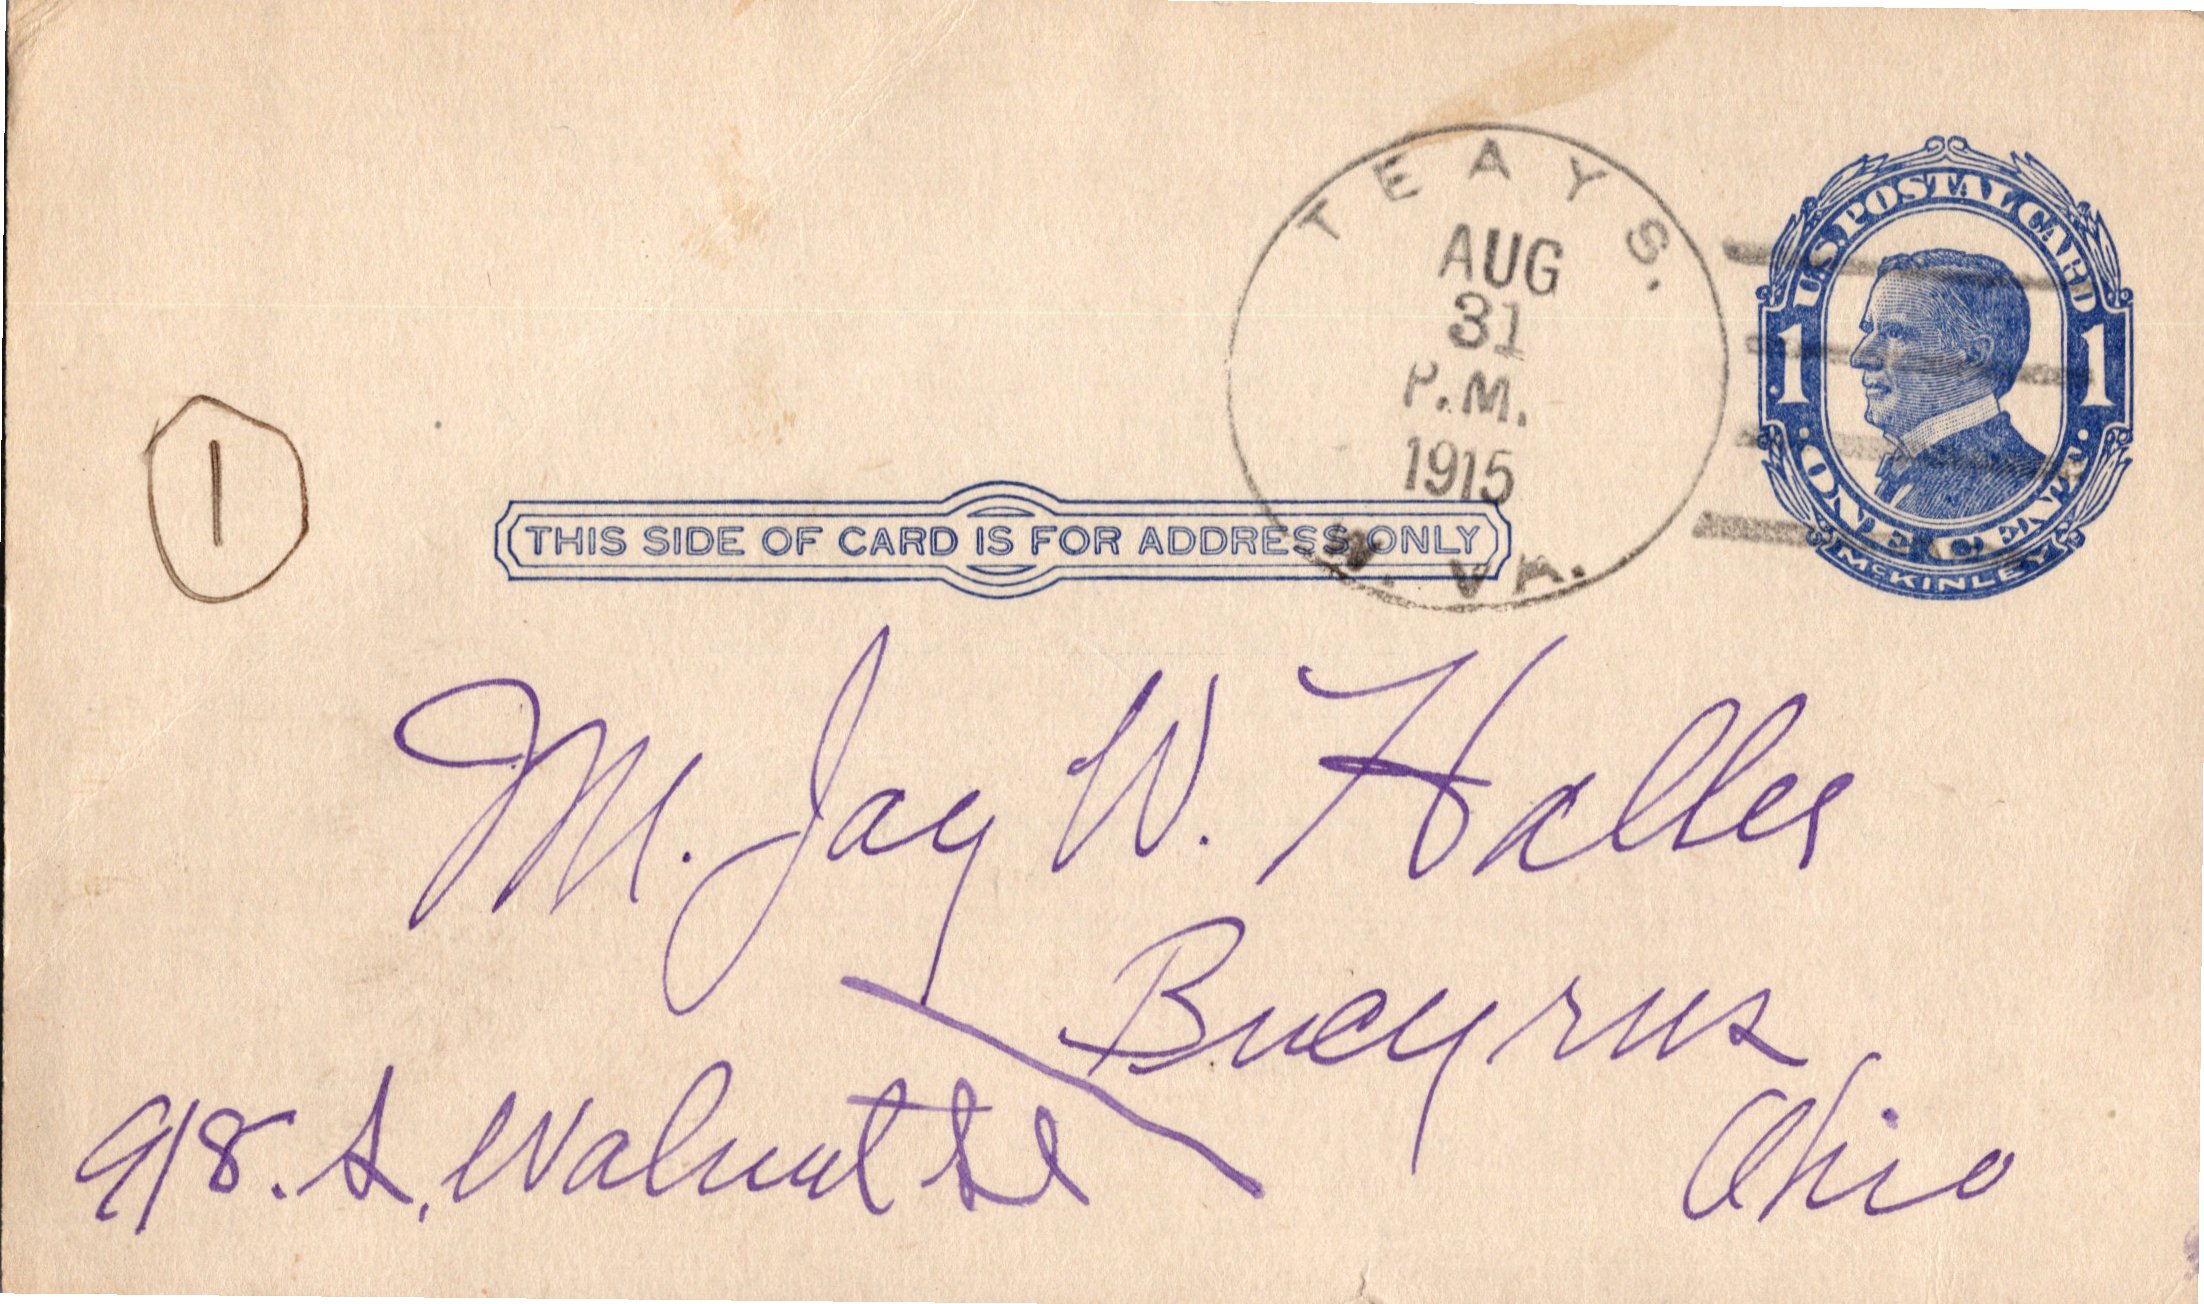 TEAYS.
AUG
31
P.M.
1915
W. VA.
U.S. POSTAL CARD
1 1
ONE CENT
McKINLEY
1
THIS SIDE OF CARD IS FOR ADDRESS ONLY
M. Jay W. Haller
Bucyrus
918. S. Walnut St
Ohio